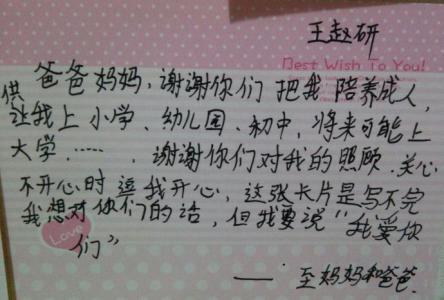 王赵研
Best Wish To You!
爸爸妈妈，谢谢你们把我陪养成人，
供让我上小学、幼儿园、初中，将来可能上
大学……，谢谢你们对我的照顾、关心
不开心时逗我开心，这张卡片是写不完
我想对你们的话，但我要说“我爱你
们”
Love
——至妈妈和爸爸.